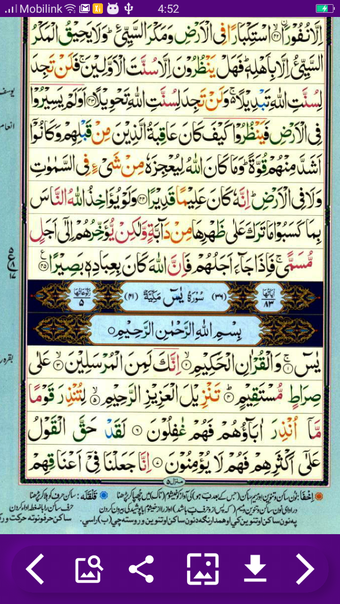 Mobilink 4:52
اِلَّا نُفُوْرًا ۙ﴿۴۲﴾ اسْتِكْبَارًا فِی الْاَرْضِ وَمَكْرَ السَّیِّئِ ؕ وَلَا یَحِیْقُ الْمَكْرُ
السَّیِّئُ اِلَّا بِاَهْلِهٖ ؕ فَهَلْ یَنْظُرُوْنَ اِلَّا سُنَّتَ الْاَوَّلِیْنَ ۚ فَلَنْ تَجِدَ
لِسُنَّتِ اللّٰهِ تَبْدِیْلًا ۚ۬ وَلَنْ تَجِدَ لِسُنَّتِ اللّٰهِ تَحْوِیْلًا ﴿۴۳﴾ اَوَلَمْ یَسِیْرُوْا
فِی الْاَرْضِ فَیَنْظُرُوْا كَیْفَ كَانَ عَاقِبَةُ الَّذِیْنَ مِنْ قَبْلِهِمْ وَكَانُوْۤا
اَشَدَّ مِنْهُمْ قُوَّةً ؕ وَمَا كَانَ اللّٰهُ لِیُعْجِزَهٗ مِنْ شَیْءٍ فِی السَّمٰوٰتِ
وَلَا فِی الْاَرْضِ ؕ اِنَّهٗ كَانَ عَلِیْمًا قَدِیْرًا ﴿۴۴﴾ وَلَوْ یُؤَاخِذُ اللّٰهُ النَّاسَ
بِمَا كَسَبُوْا مَا تَرَكَ عَلٰی ظَهْرِهَا مِنْ دَآبَّةٍ وَّلٰكِنْ یُّؤَخِّرُهُمْ اِلٰۤی اَجَلٍ
مُّسَمًّی ۚ فَاِذَا جَآءَ اَجَلُهُمْ فَاِنَّ اللّٰهَ كَانَ بِعِبَادِهٖ بَصِیْرًا ﴿۴۵﴾
اٰیاتها ۸۳ (۳۶) سُوْرَةُ یٰسٓ مَكِّیَّةٌ (۴۱) رکوعاتها ۵
بِسْمِ اللّٰهِ الرَّحْمٰنِ الرَّحِیْمِ
یٰسٓ ۚ﴿۱﴾ وَالْقُرْاٰنِ الْحَكِیْمِ ۙ﴿۲﴾ اِنَّكَ لَمِنَ الْمُرْسَلِیْنَ ۙ﴿۳﴾ عَلٰی
صِرَاطٍ مُّسْتَقِیْمٍ ؕ﴿۴﴾ تَنْزِیْلَ الْعَزِیْزِ الرَّحِیْمِ ۙ﴿۵﴾ لِتُنْذِرَ قَوْمًا
مَّاۤ اُنْذِرَ اٰبَآؤُهُمْ فَهُمْ غٰفِلُوْنَ ﴿۶﴾ لَقَدْ حَقَّ الْقَوْلُ
عَلٰۤی اَكْثَرِهِمْ فَهُمْ لَا یُؤْمِنُوْنَ ﴿۷﴾ اِنَّا جَعَلْنَا فِیْۤ اَعْنَاقِهِمْ
منزل ۵